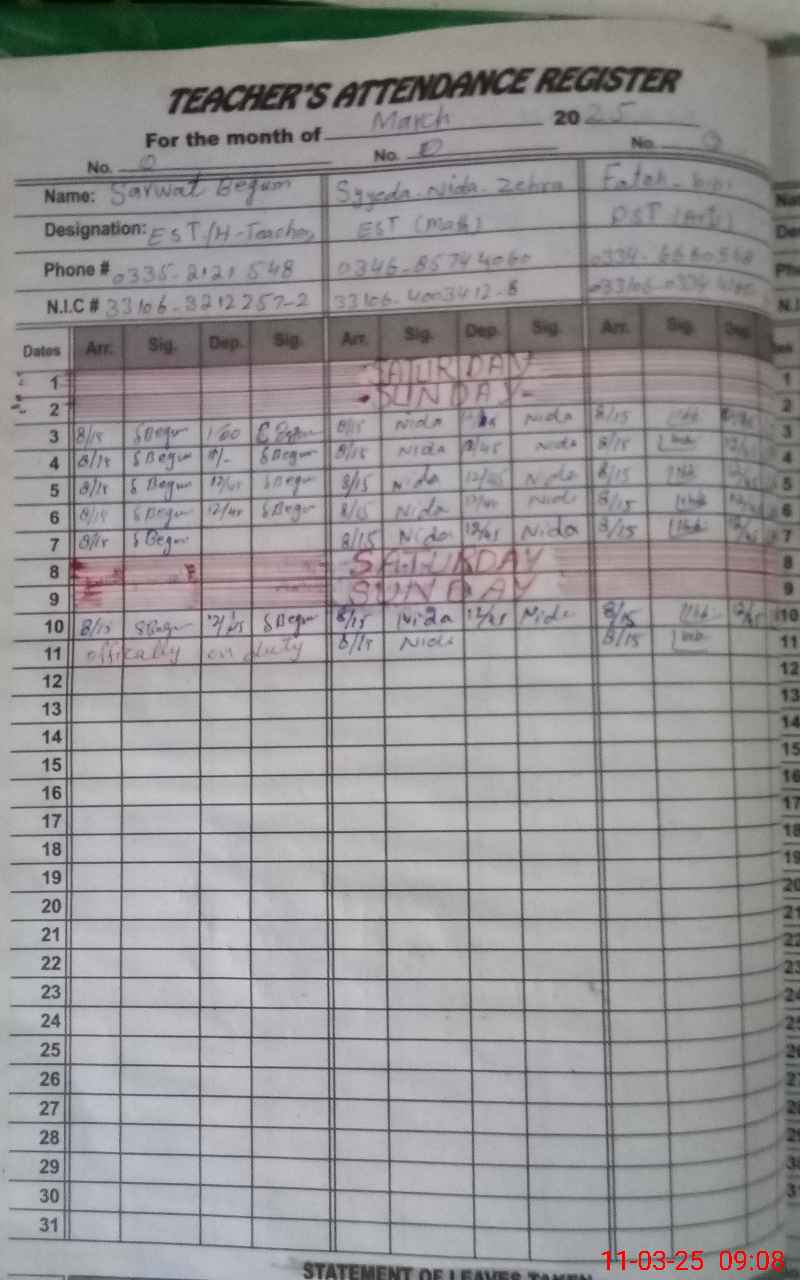 TEACHER'S ATTENDANCE REGISTER
For the month of March 2025
No. 0 No. 0 No. 0
Name: Sarwat Begum Syyeda. Nida. Zehra Fateh. bibi
Designation: EST/H-Teacher EST (Math) PST (Arts)
Phone # 0335-2121548 0346-85744060 0334-
N.I.C # 33106-3212257-2 33106-4003412-8
Dates Arr. Sig. Dep. Sig. Arr. Sig. Dep. Sig. Arr. Sig. Dep.
1 SATURDAY 1
2 SUNDAY 2
3 8/15 S Begum 1/00 8/15 Nida Nida 8/15 3
4 8/15 S Begum 1/- S Begum 8/15 Nida 12/45 Nida 8/15 4
5 8/15 S Begum 12/45 S Begum 8/15 Nida 12/45 Nida 8/15 5
6 8/15 S Begum 12/45 S Begum 8/15 Nida 12/45 Nida 8/15 6
7 8/15 S Begum 8/15 Nida 12/45 Nida 8/15 12/45 7
8 SATURDAY 8
9 SUNDAY 9
10 8/15 S Begum 12/45 S Begum 8/15 Nida 12/45 Nida 8/15 12/45 10
11 offically on duty 8/15 Nida 8/15 11
12 12
13 13
14 14
15 15
16 16
17 17
18 18
19 19
20 20
21 21
22 22
23 23
24 24
25 25
26 26
27 27
28 28
29 29
30 30
31 31
STATEMENT OF LEAVES TAKEN
11-03-25 09:08